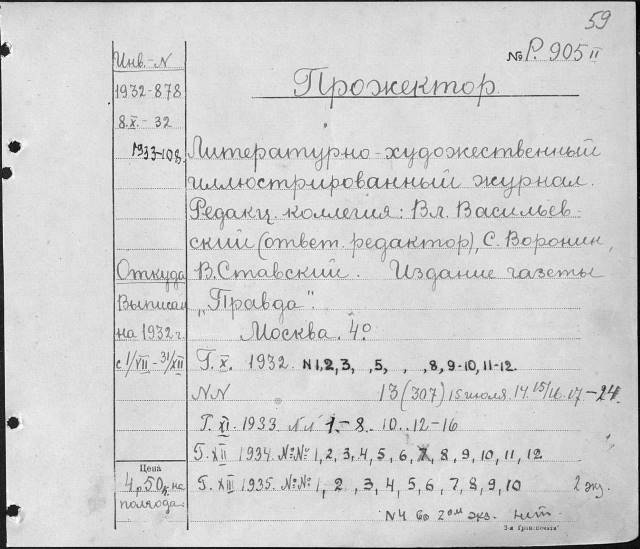 59
№ Р. 905 II
Инв.-N
Прожектор.
1932-878
8.X.-32
1933-108.
Литературно-художественный
иллюстрированный журнал.
Редакц. коллегия: Вл. Васильев-
ский (ответ. редактор), С. Воронин,
Откуда
В. Ставский. Издание газеты
Выписан
„Правда".
на 1932 г.
Москва. 4°
с 1/VII - 31/XII
Г. X. 1932. N 1, 2, 3, , 5, , , 8, 9-10, 11-12.
NN 13 (307) 15 июля. 14. 15/16. 17-24.
Г. XI. 1933. NN 1.-8.. 10..12-16
Г. XII 1934. №№ 1, 2, 3, 4, 5, 6, 7, 8, 9, 10, 11, 12
Цена
4 р 50 к на
полгода.
Г. XIII 1935. №№ 1, 2, 3, 4, 5, 6, 7, 8, 9, 10 2 экз.
N4 во 2ом экз. нет.